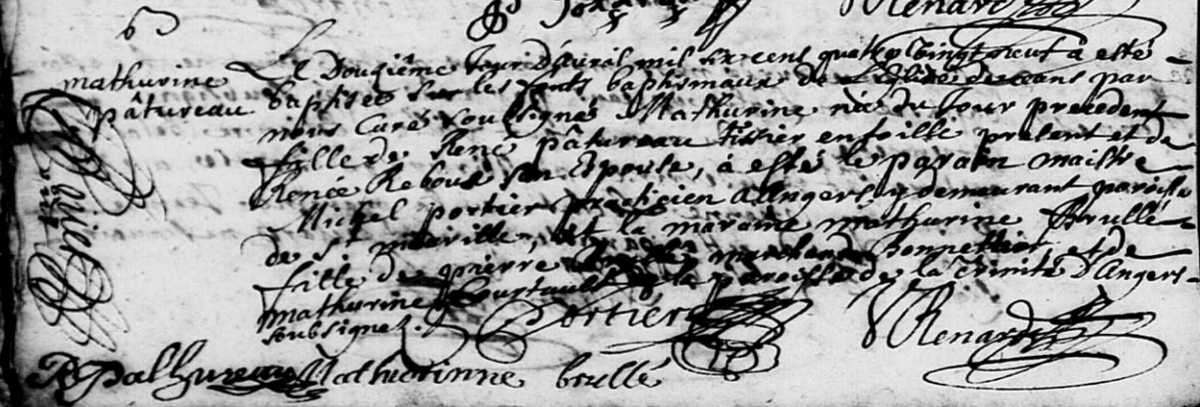 65
Renard
mathurine
pâtureau
Le Douziême Jour D'avril mil six cent quatre vingt neuf à esté
baptisée sur les fonts baptismaux de L'Eglise de ceans par
nous Curé soubsigné Mathurine née du Jour precedent
fille de René pâtureau Tissier en toille present et de
Renée Rebous son Epouse, à esté le parain maistre
Michel portier practicien a Angers y demeurant paroisse
de St maurille, et la maraine mathurine Brullé
fille de pierre marchand Bonnettier et de
mathurine de la paroisse de la Trinité D'Angers
soubsignez.
Portier
VRenard
R pathureau Mathurinne brullé